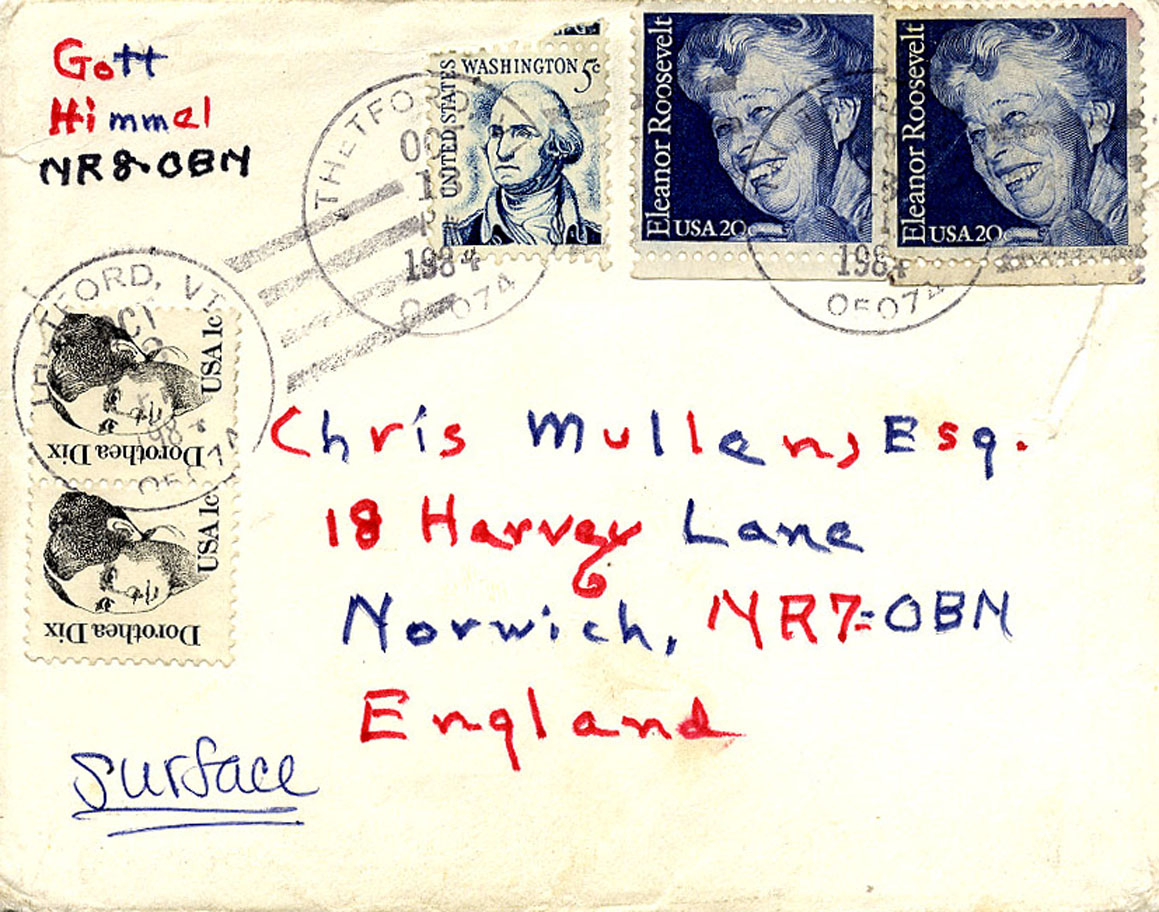 Gott
Himmel
NR8-OBN
UNITED STATES
WASHINGTON 5c
Eleanor Roosevelt
USA 20c
Eleanor Roosevelt
USA 20c
THETFORD
1984
05074
1984
05074
THETFORD, VT
OCT
USA 1c
Dorothea Dix
USA 1c
Dorothea Dix
Chris Mullens, Esq.
18 Harvey Lane
Norwich, NR7=OBN
England
Surface